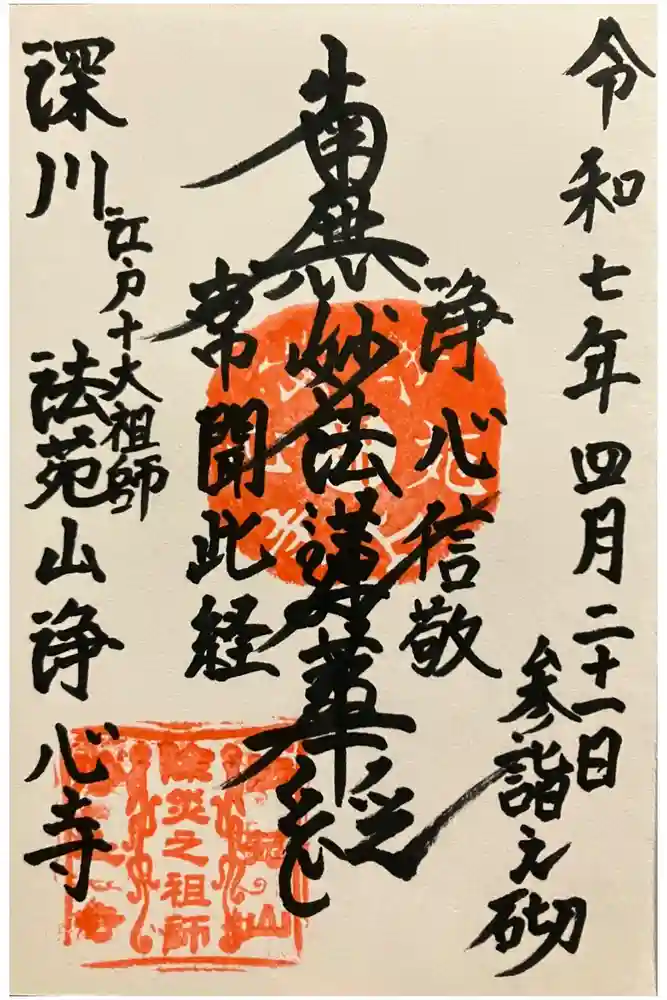 令和七年四月二十一日
参詣之砌
浄心信敬
南無妙法蓮華経
常聞此経
江戸十大祖師
深川
法苑山浄心寺
法苑山
除災之祖師
浄心寺